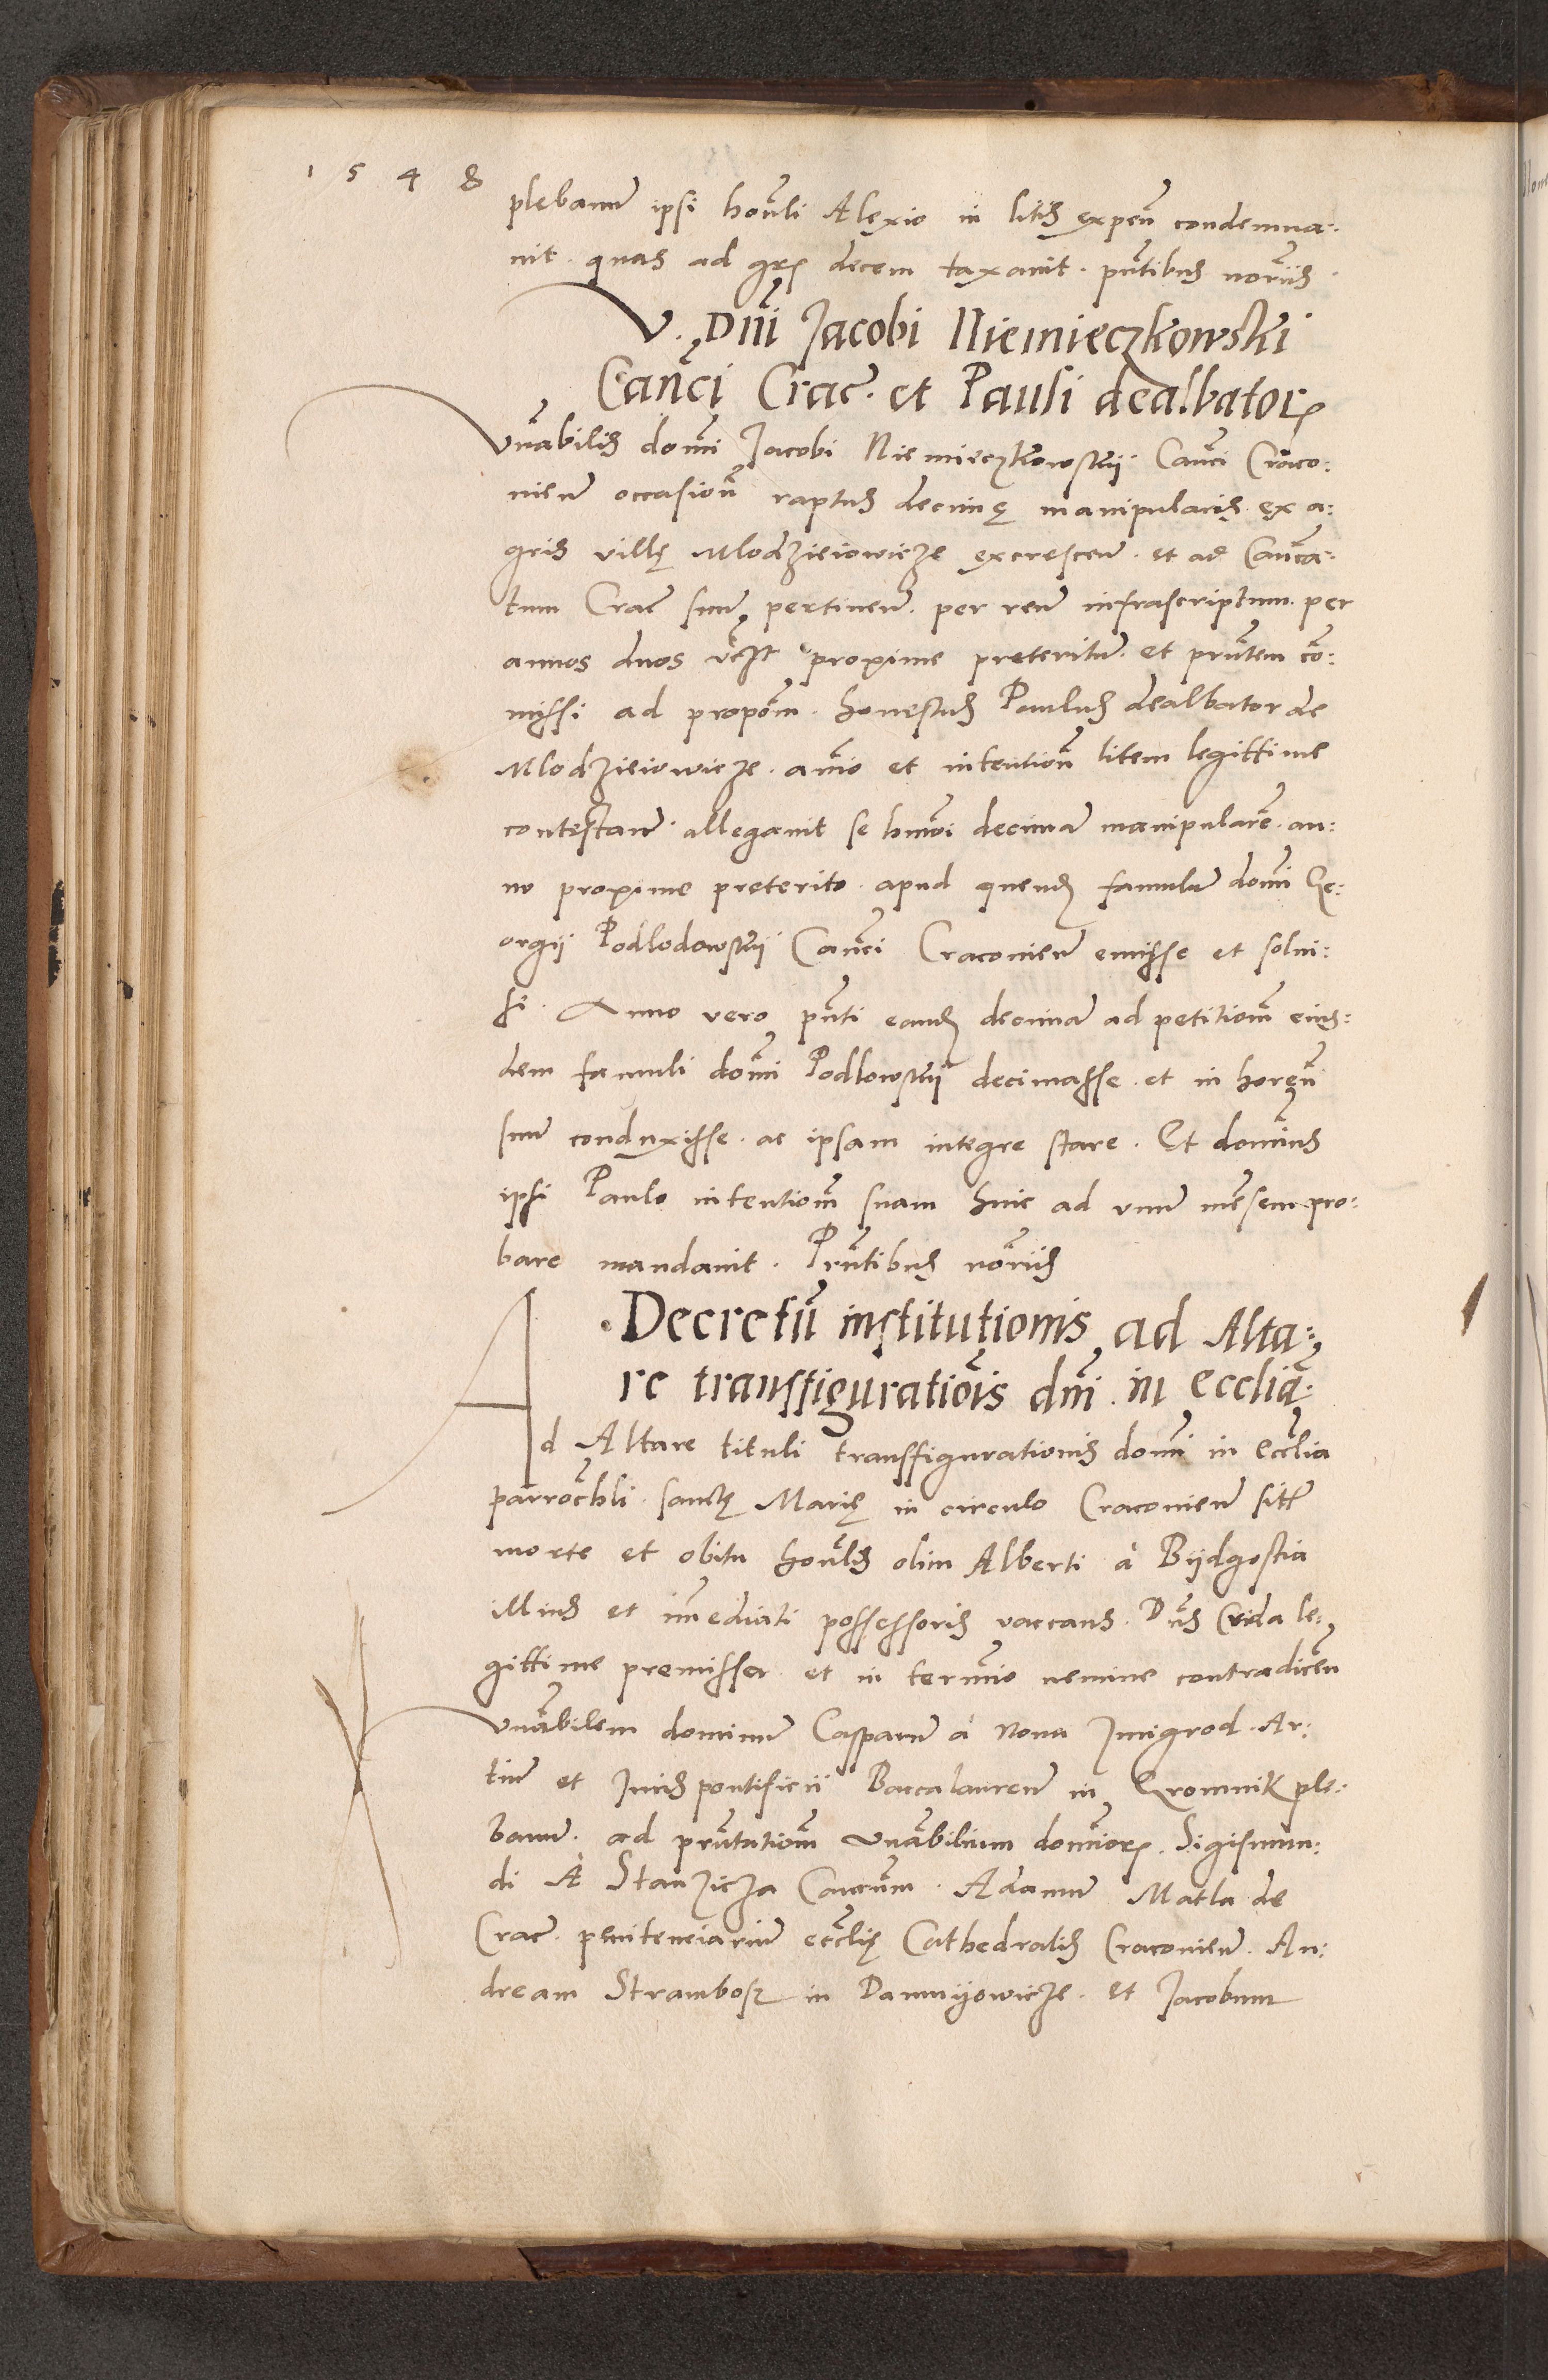 1 5 4 8
plebanum ipsi honorli Alexio in litis expen condemna:
uit. quas ad grs decem taxauit. pñtibus notariis.
V. Dñi Jacobi Niemieczkowski
Cañci Crac. et Pauli dealbatoris
Vnabilis domi Jacobi Niemieczkowskij Cañci Craco:
nien occasion raptus decimę manipularis. ex a:
gris villę Mlodzieiowicze excrescen. et ad Canca:
tum Crac suum pertinen. per reum infrascriptum. per
annos duos vczt proxime preteritum. et prntem co:
missi ad propom. honestus Paulus dealbator de
Mlodzieiowicze. animo et intention litem legittime
contestan. allegauit se hmoi decimam manipularem. an:
no proxime preterito. apud quendam famulum domi Ge:
orgij Podlodowskij Cañci Cracouien emisse et solui:
sse. Anno vero pnti eandem decimam ad petitiom eius:
dem famuli domi Podlowskij decimasse. et in horreum
suum conduxisse. ac ipsam integre stare. Et dominus
ipsi Paulo intentiom suam hinc ad vnum mensem pro:
bare mandauit. Prntibus notariis
Decretum institutionis ad Alta:
re transfigurationis dñi. in ecclia.
Ad Altare tituli transfigurationis domi in ecclia
parrochli. sanctę Marię in circulo Cracouien sitt
morte et obitu honorlis olim Alberti à Bydgostia
illius et immediati possessoris vaccans. Dns Crida le:
gittime premissa. et in termino nemine contradicen
Vnabilem dominum Casparum à Noua Zmigrod. Ar:
tium et Juris pontificii Baccalaureum in Gromnik ple:
banum. ad prntatiom Vnabilium dominorum. Sigismun:
di A Stanzicza Canonum. Adamum Matla de
Crac. penitenciarium ecclię Cathedralis Cracouien. An:
dream Strambosz in Damyowicze. et Jacobum